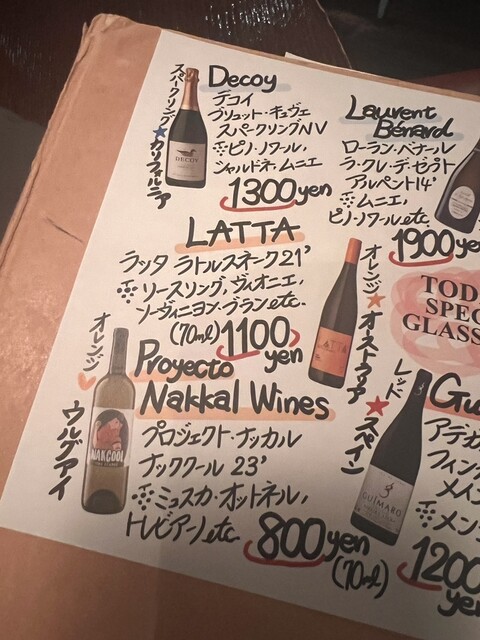 スパークリング★カリフォルニア
Decoy
デコイ
ブリュット・キュヴェ
スパークリングNV
ピノ・ノワール,
シャルドネ・ムニエ
1300yen
DECOY
Laurent
Bérard
ローラン・ベナール
ラ・クレ・デ・ゼプト
アルペント14'
ムニエ,
ピノ・ノワール etc.
1900yen
LATTA
ラッタ ラトルスネーク21'
リースリング,ヴィオニエ,
ソーヴィニヨン・ブラン etc.
(70ml) 1100
yen
オレンジ★オーストラリア
LATTA
TOD
SPEC
GLASS
オレンジ
ウルグアイ
NAKCOOL
Proyecto
Nakkal Wines
プロジェクト・ナッカル
ナッククール 23'
ミュスカ・オットネル,
トレビアーノ etc.
800yen
(70ml)
レッド★スペイン
GUIMARO
Gu
アデガ
フィン
メイ
メン
1200
ye